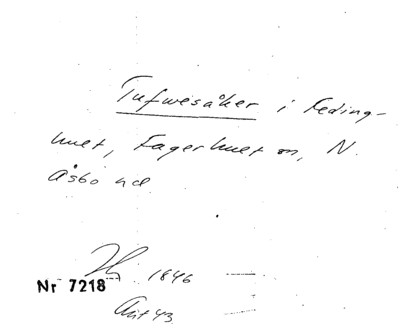 Tufwesåker i Feding-
hult, Fagerhult sn, N.
Åsbo hd
1846
Nr 7218
Akt 43